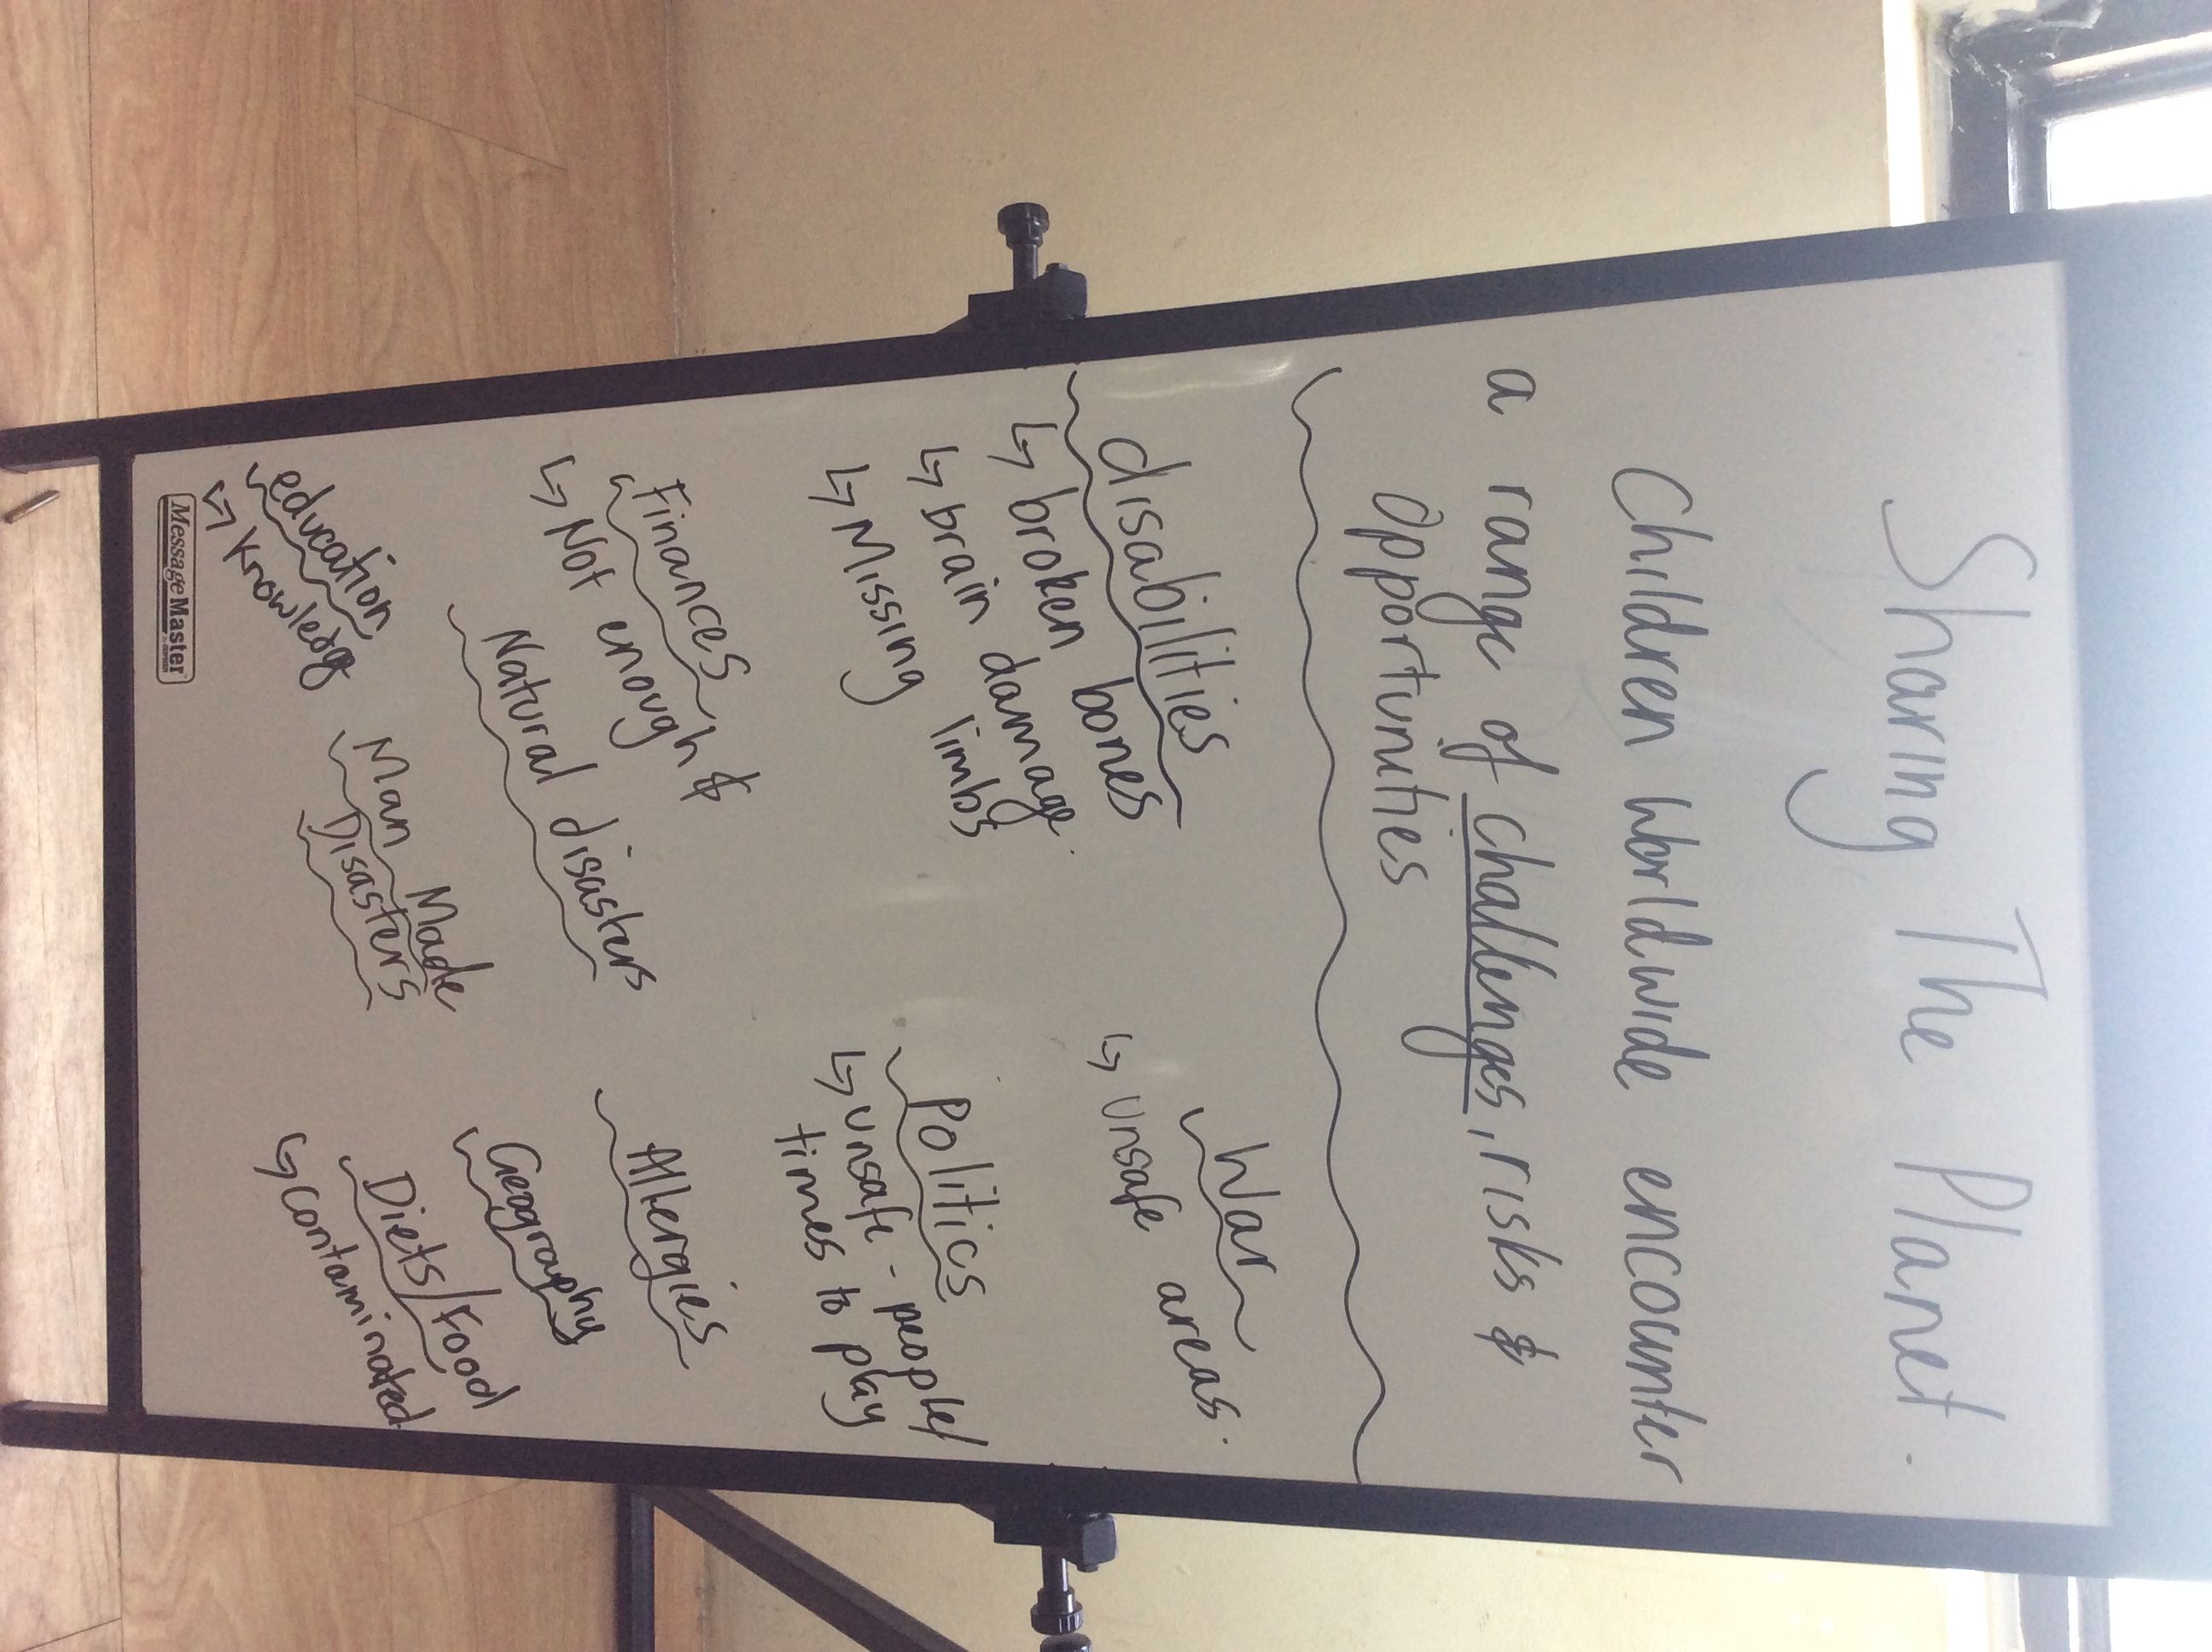 Sharing The Planet.
Children Worldwide encounter
a range of challenges, risks &
Opportunities
disabilities
↳ broken bones
↳ brain damage.
↳ Missing limbs
War
↳ unsafe areas.
Politics
↳ unsafe - people/
times to play
Finances
↳ Not enough $
Natural disasters
Allergies
Geography
education
↳ Knowledge
Man Made
Disasters
Diets/Food
↳ contaminated
MessageMaster